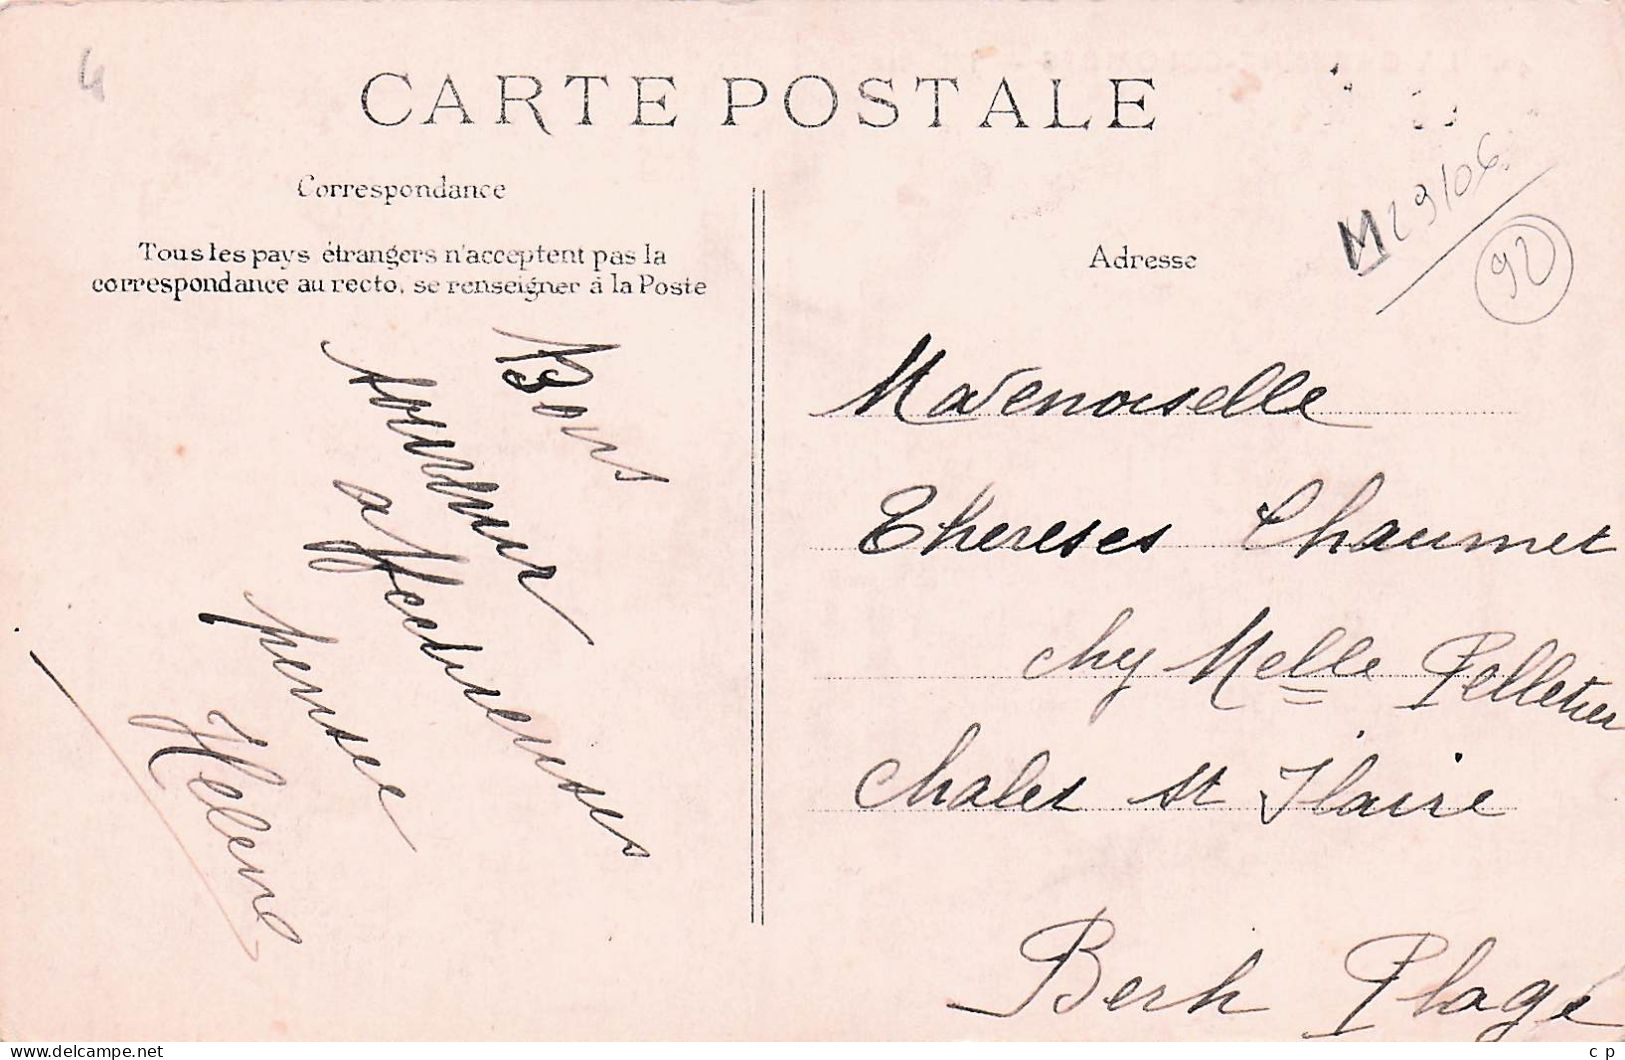 CARTE POSTALE
Correspondance
Tous les pays étrangers n'acceptent pas la
correspondance au recto, se renseigner à la Poste
Bons
affectueuses
pensee
Helene
Adresse
M29/06.
92
Mademoiselle
Thereses Chaumet
chy Melle Pelletier
Chalet St Ilaire
Berk Plage
c p